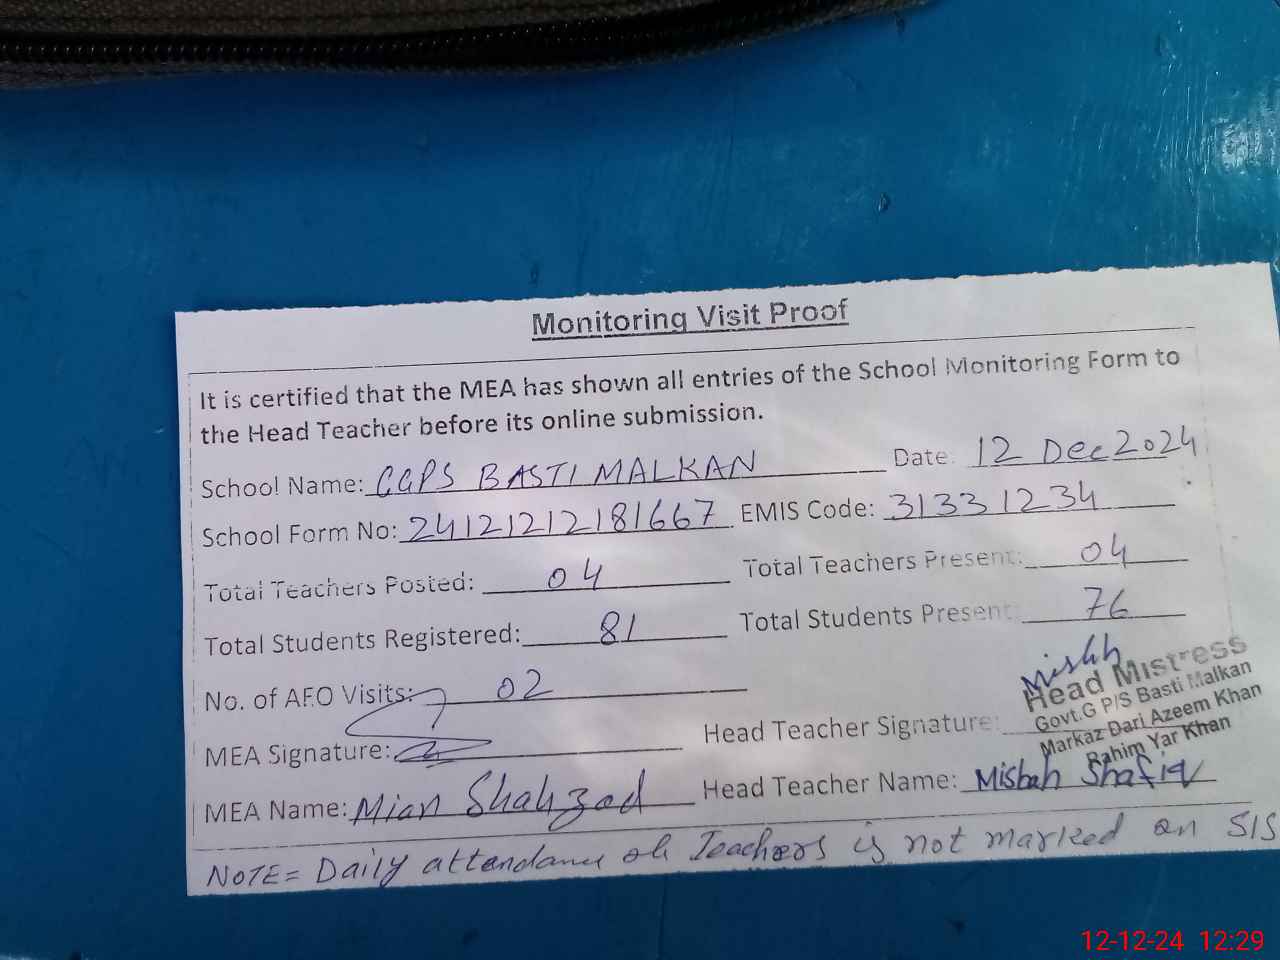 Monitoring Visit Proof
It is certified that the MEA has shown all entries of the School Monitoring Form to
the Head Teacher before its online submission.
School Name: GGPS BASTI MALKAN Date: 12 Dec 2024
School Form No: 24121212181667 EMIS Code: 31331234
Total Teachers Posted: 04 Total Teachers Present: 04
Total Students Registered: 81 Total Students Present: 76
No. of AEO Visits: 02
MEA Signature: Head Teacher Signature:
Head Mistress
Govt.G P/S Basti Malkan
Markaz Dari Azeem Khan
Rahim Yar Khan
MEA Name: Mian Shahzad Head Teacher Name: Misbah Shafiq
NOTE= Daily attendance of Teachers is not marked on SIS
12-12-24 12:29